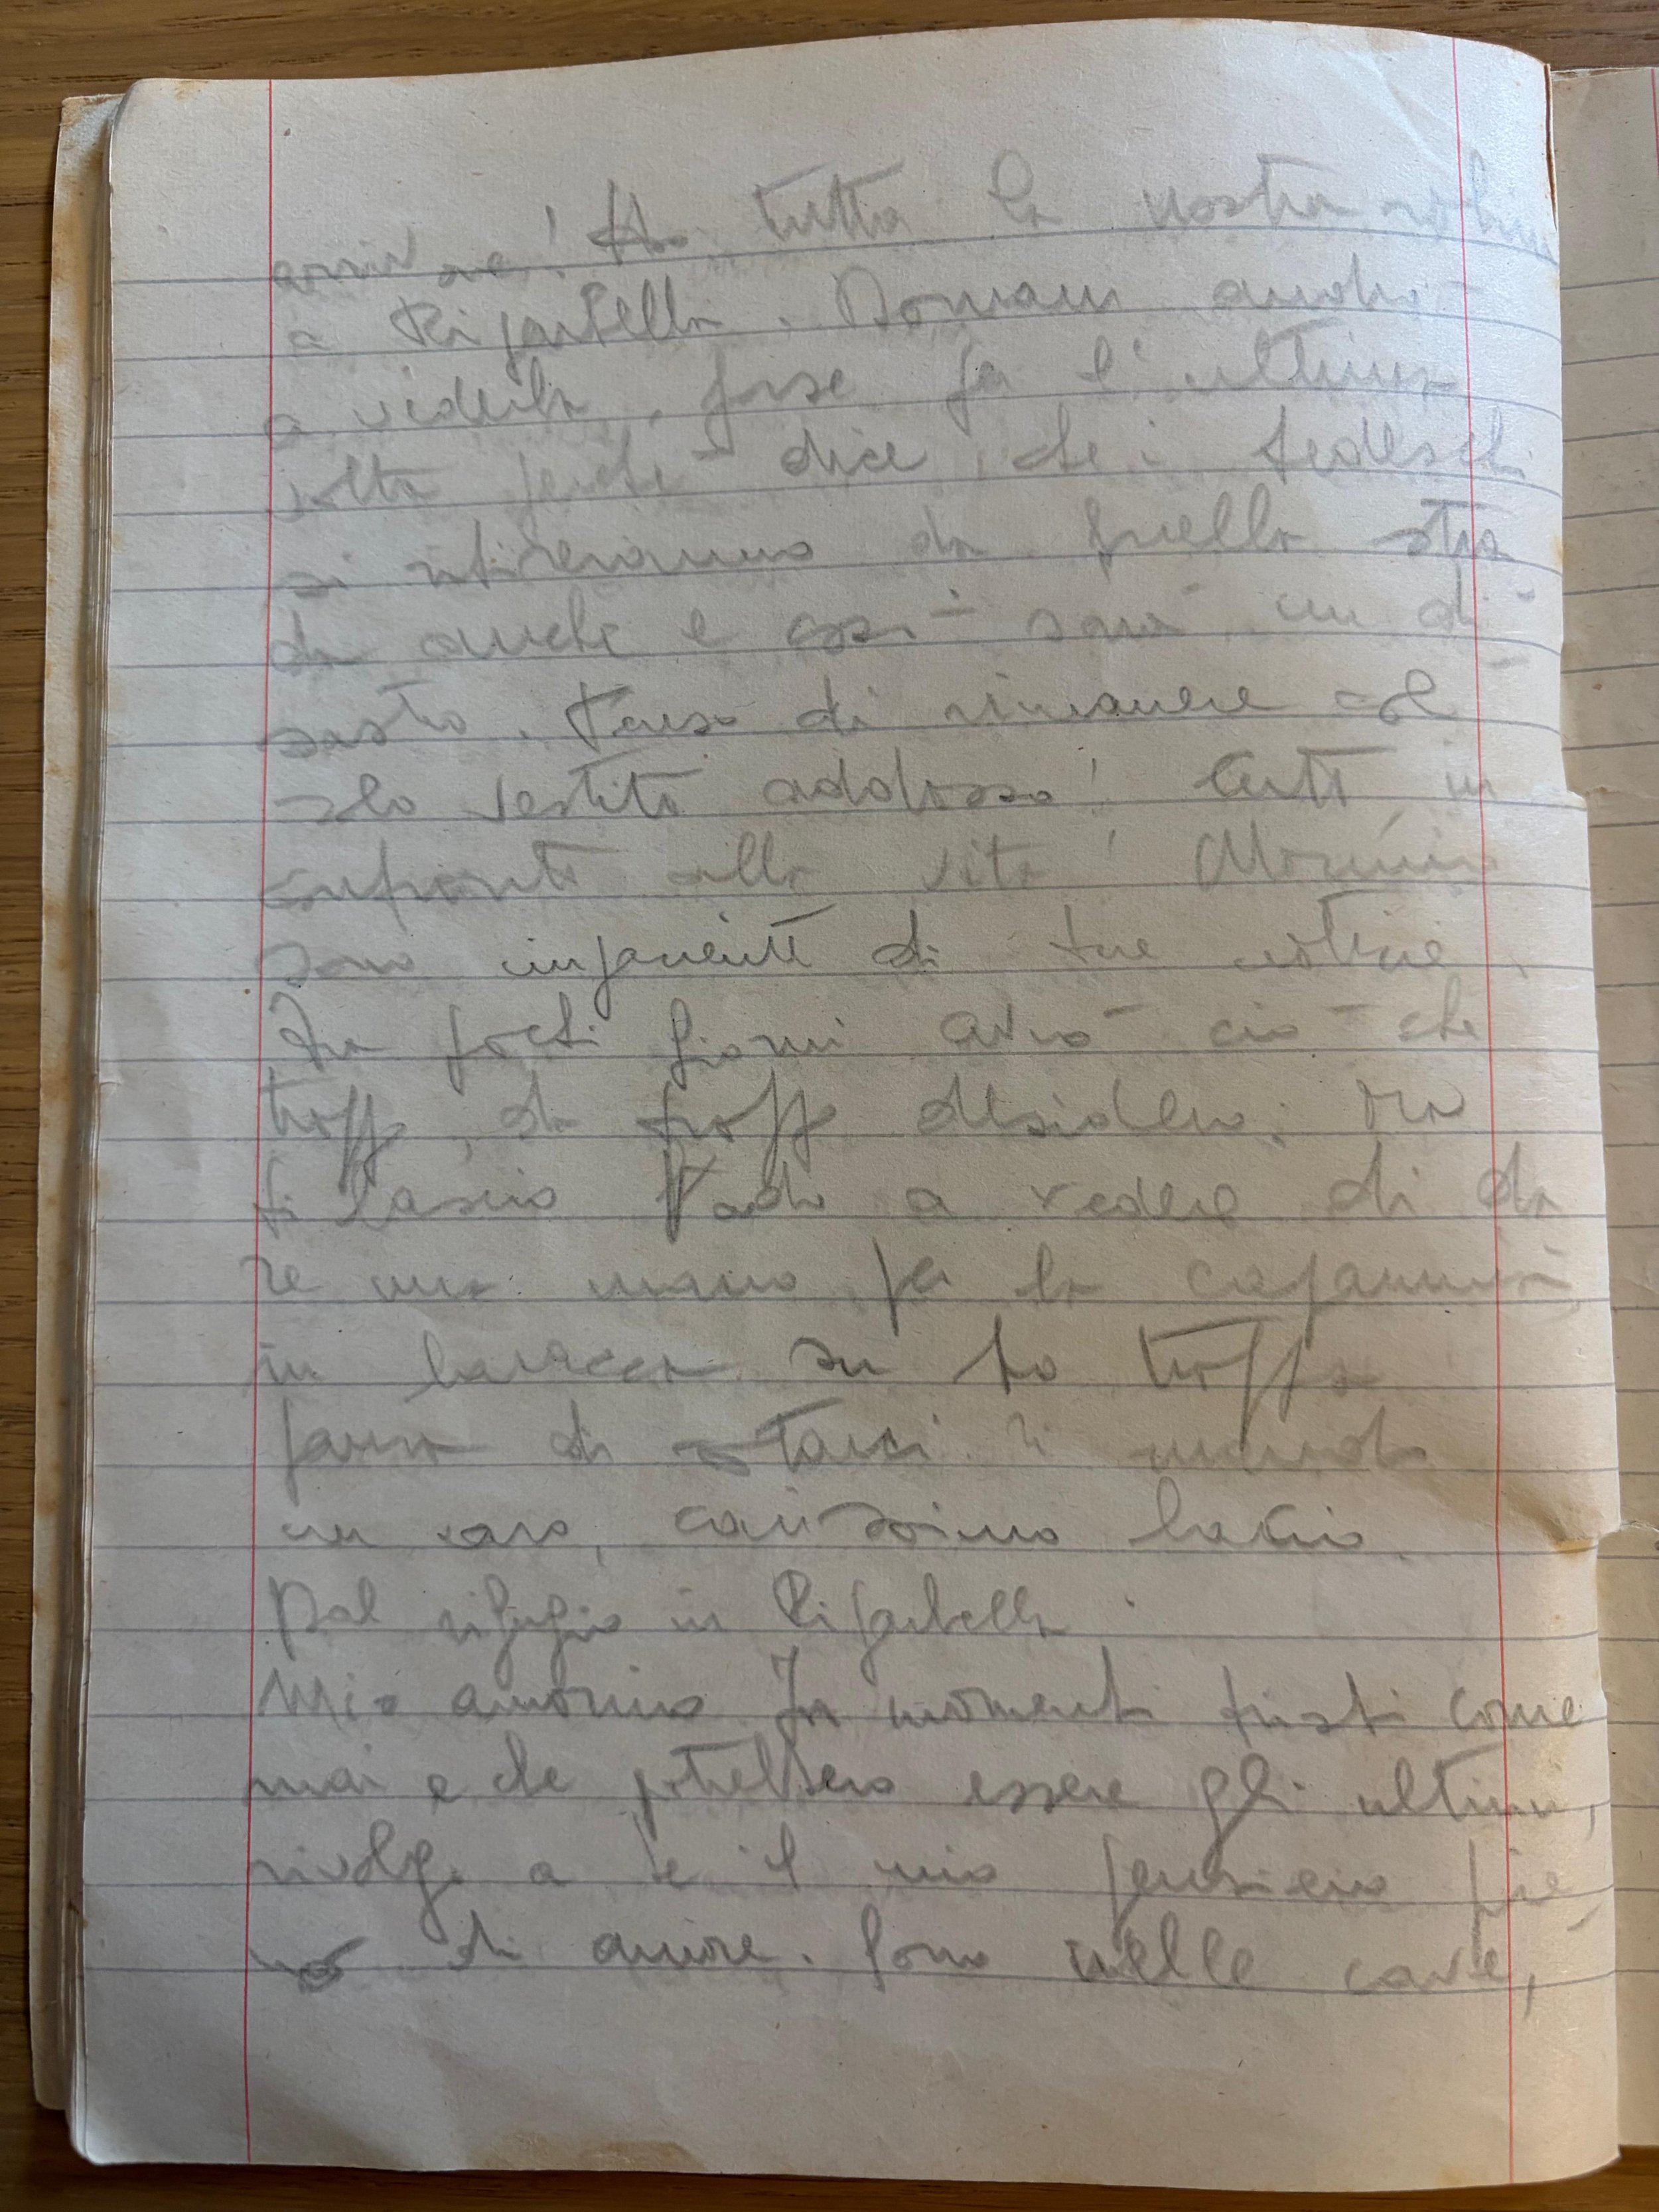 arrivare! Ho tutta la nostra roba
a Riparbella. Domani andrò
a vederla, forse per l'ultima
volta perchè dice che i tedeschi
si ritireranno da quella stra
da anche e così sarà un di
sastro. Penso di rimanere col
solo vestito addosso! Tutto in
confronto alla vita!
sono impaziente di tue notizie.
Fra pochi giorni avrò ciò che
troppo, da troppo desidero. Ora
ti lascio Vado a vedere di da
re una mano per la capanna,
in baracca su ho troppa
paura di starci. Ti mando
un caro, carissimo bacio.
Dal rifugio in Riparbella
Mio amorino In momenti tristi come
mai e che potrebbero essere gli ultimi,
rivolgo a te il mio pensiero pie
no di amore. Sono nelle cave,